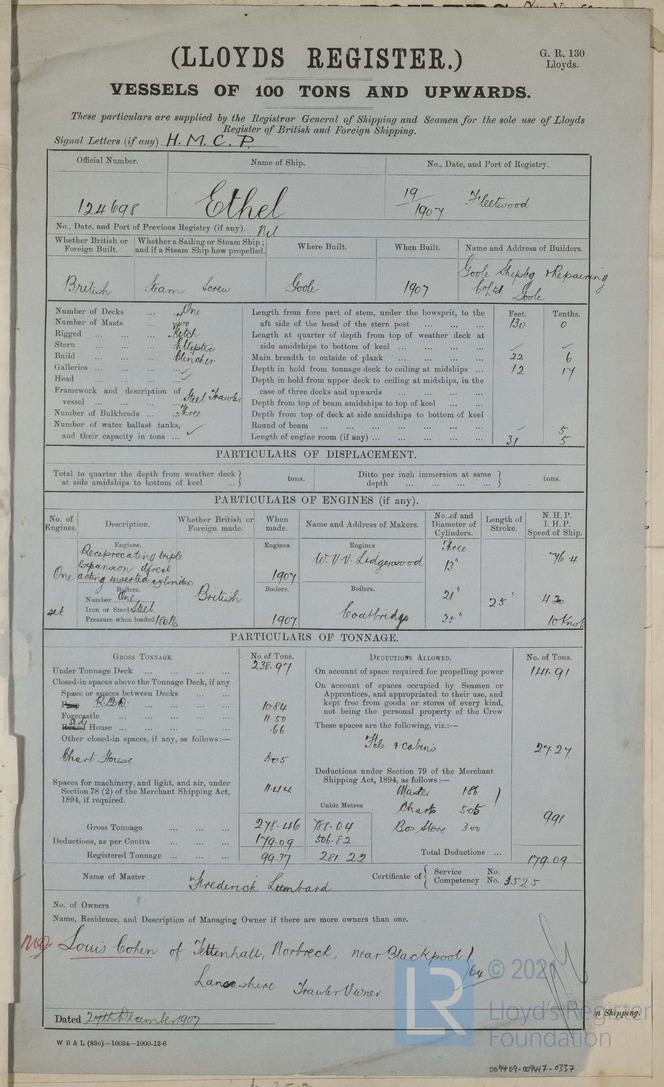 (LLOYDS REGISTER.)
G. R. 130
Lloyds.
VESSELS OF 100 TONS AND UPWARDS.
These particulars are supplied by the Registrar General of Shipping and Seamen for the sole use of Lloyds
Register of British and Foreign Shipping.
Signal Letters (if any) H. M. C. P.
Official Number. Name of Ship. No., Date, and Port of Registry.
124698 Ethel 19/1907 Fleetwood
No., Date, and Port of Previous Registry (if any). Nil
Whether British or Foreign Built. Whether a Sailing or Steam Ship; and if a Steam Ship how propelled. Where Built. When Built. Name and Address of Builders.
British Steam Screw Goole 1907 Goole Shipbg & Repairing Co Ltd Goole
Number of Decks ... One
Number of Masts ... Two
Rigged ... Ketch
Stern ... Elliptic
Build ... Clencher
Galleries ...
Head ...
Framework and description of vessel ... Steel Trawler
Number of Bulkheads ... Three
Number of water ballast tanks, and their capacity in tons ...
Feet. Tenths.
Length from fore part of stem, under the bowsprit, to the
aft side of the head of the stern post ... 130 0
Length at quarter of depth from top of weather deck at
side amidships to bottom of keel ...
Main breadth to outside of plank ... 22 6
Depth in hold from tonnage deck to ceiling at midships ... 12
Depth in hold from upper deck to ceiling at midships, in the
case of three decks and upwards ...
Depth from top of beam amidships to top of keel ...
Depth from top of deck at side amidships to bottom of keel
Round of beam ... 5
Length of engine room (if any) ... 31 5
PARTICULARS OF DISPLACEMENT.
Total to quarter the depth from weather deck at side amidships to bottom of keel ... tons. Ditto per inch immersion at same depth ... tons.
PARTICULARS OF ENGINES (if any).
No. of Engines. Description. Whether British or Foreign made. When made. Name and Address of Makers. No. of and Diameter of Cylinders. Length of Stroke. N. H. P. I. H. P. Speed of Ship.
Engines. Engines. Engines Three
Reciprocating triple expansion direct acting inverted cylinders
One set British 1907 W. V. V. Lidgerwood 13" 76.4
Boilers. Boilers. Boilers. 21" 25" 420
Number One
Iron or Steel Steel
Pressure when loaded 180 lb 1907 Coatbridge 10 Knots
PARTICULARS OF TONNAGE.
GROSS TONNAGE. No of Tons.
Under Tonnage Deck ... 238.97
Closed-in spaces above the Tonnage Deck, if any
Space or spaces between Decks ...
Poop 10.84
Forecastle 11.50
Round House ... .66
Other closed-in spaces, if any, as follows:—
Chart House 5.05
Spaces for machinery, and light, and air, under
Section 78 (2) of the Merchant Shipping Act,
1894, if required. 11.44
Cubic Metres
Gross Tonnage ... 278.46 788.04
Deductions, as per Contra ... 179.09 506.82
Registered Tonnage ... 99.37 281.22
DEDUCTIONS ALLOWED. No. of Tons.
On account of space required for propelling power 144.91
On account of spaces occupied by Seamen or
Apprentices, and appropriated to their use, and
kept free from goods or stores of every kind,
not being the personal property of the Crew
These spaces are the following, viz.:—
Fcle & cabins 24.27
Deductions under Section 79 of the Merchant
Shipping Act, 1894, as follows:—
Master 186
Charts 505
Bos Store 300 991
Total Deductions ... 179.09
Name of Master Frederick Lumbard Certificate of Service No. Competency No.
No. of Owners
Name, Residence, and Description of Managing Owner if there are more owners than one.
Louis Cohen of Tettenhall, Norbreck, near Blackpool
Lancashire Trawler Owner
64
Dated 27th December 1907
n Shipping.
W B & L (830)—16034—1000-12-6
LR
© 2021
Lloyd's Register
Foundation
009409-009417-0337